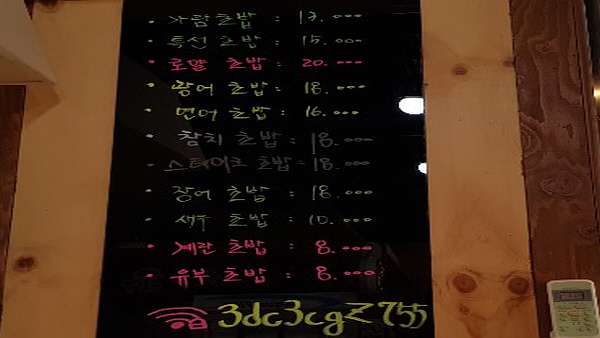 · 사람 초밥 : 13.000
· 특선 초밥 : 15.000
· 로얄 초밥 : 20.000
· 광어 초밥 : 18.000
· 연어 초밥 : 16.000
· 참치 초밥 : 18.000
· 스테이크 초밥 : 18.000
· 장어 초밥 : 18.000
· 새우 초밥 : 10.000
· 계란 초밥 : 8.000
· 유부 초밥 : 8.000
3dc3cgz755